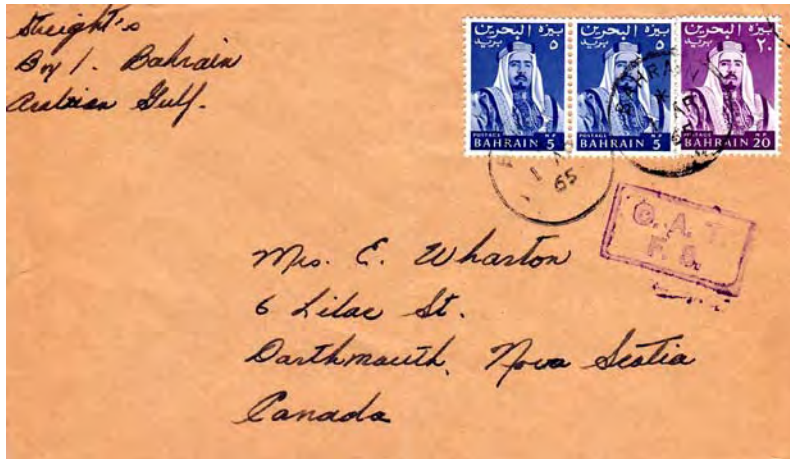 Streight's
Box 1. Bahrain
Arabian Gulf.
بيزة البحرين
٥ بريد
POSTAGE N.P.
BAHRAIN 5
بيزة البحرين
٥ بريد
POSTAGE N.P.
BAHRAIN 5
بيزة البحرين
٢٠ بريد
POSTAGE N.P.
BAHRAIN 20
BAHRAIN
65
65
O.A.T.
F.S.
Mrs. E. Wharton
6 Lilac St.
Darthmouth, Nova Scotia
Canada